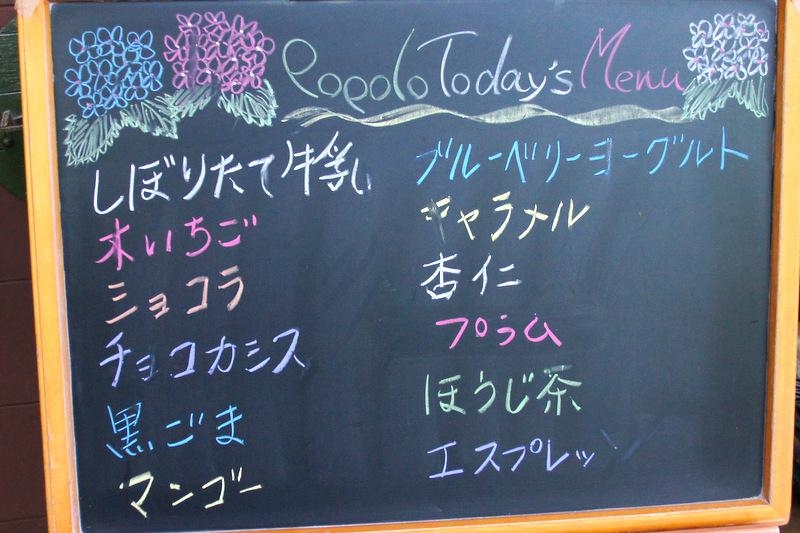 Popolo Today's Menu
しぼりたて牛乳
木いちご
ショコラ
チョコカシス
黒ごま
マンゴー
ブルーベリーヨーグルト
キャラメル
杏仁
プラム
ほうじ茶
エスプレッソ